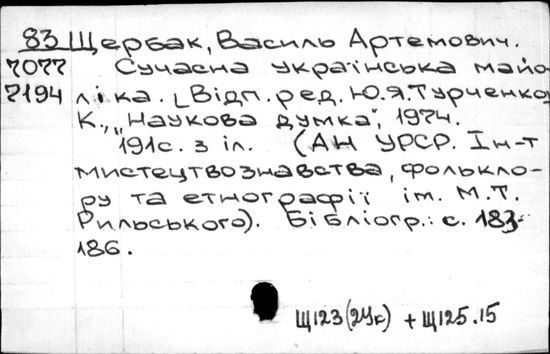 83 Щербак, Василь Артемович.
7077 Сучасна українська майо-
7194 ліка. [Відп. ред. Ю.Я.Турченко
К., „Наукова думка", 1974.
191с. з іл. (АН УРСР. Ін-т
мистецтвознавства, фолькло-
ру та етнографії ім. М.Т.
Рильського). Бібліогр.: с. 183-
186.
Щ123(2Ук) + Щ125.15